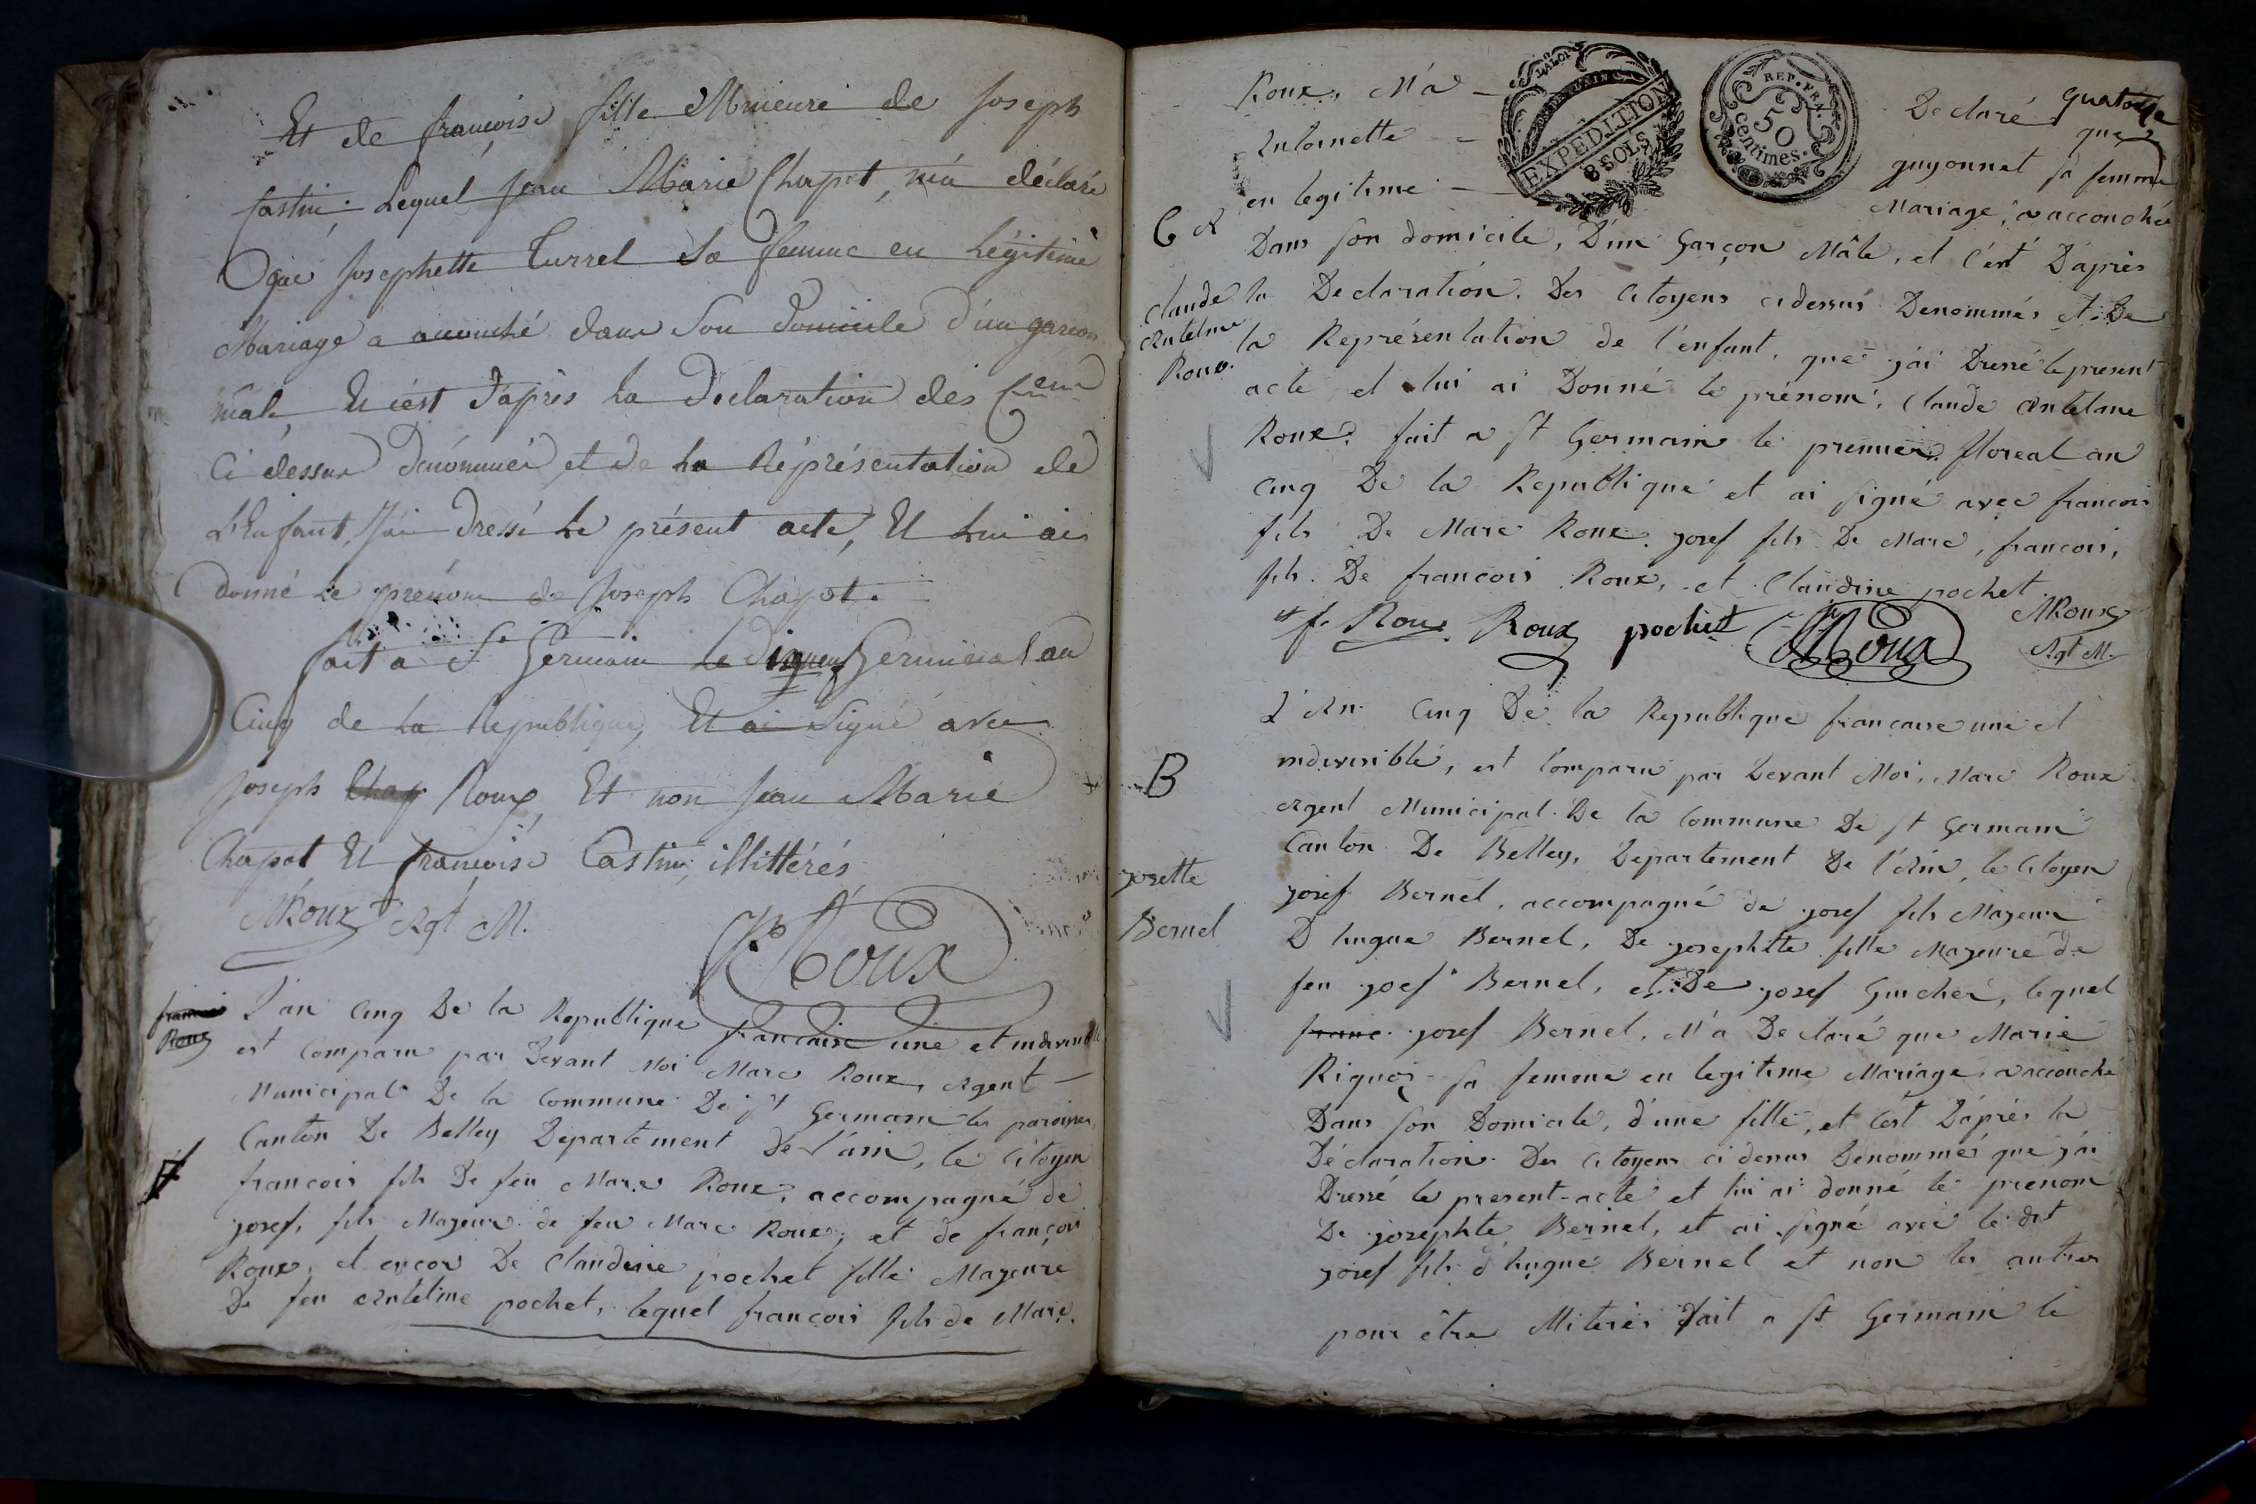 Et de françoise fille Mineure de Joseph
Castin; Lequel Jean Marie Chapot, m'a déclaré
que Josephette Turrel Sa femme en Légitime
Mariage a accouché dans Son domicile d'un garçon
mâle, Et c'est d'après La Déclaration des Cens
Ci dessus dénommés, et de La Réprésentation de
L'Enfant, J'ai dressé Le présent acte, Et Lui ai
donné Le prénom de Joseph Chapot.
fait a St Germain Le Germinal an
Cinq de La République, Et ai Signé avec
Joseph Chap Roux, Et non Jean Marie
Chapot Et françoise Castin, illittérés
MRoux Agt M.
Roux
francois
Roux
L'an Cinq De la Republique francaise une et indivisible
est Comparu par Devant Moi Marc Roux, Agent
Municipal De la Commune De St Germain les paroisses,
Canton De Belley Departement De l'ain, le Citoyen
francois fils De feu Marc Roux, accompagné de
josef, fils Majeur de feu Marc Roux, et de françois
Roux, et encor De Claudine pochet fille Majeure
De feu Antelme pochet, lequel francois fils de Marc.
quatorze
Roux, M'a Declaré que
Antoinette guyonnet sa femme
en legitime Mariage, a accouchée
LA LOI
EXPEDITION
8 SOLS
REP. FRA.
50
centimes.
C R
Claude
Antelme
Roux.
Dans son domicile, D'un Garçon Mâle, et c'est D'après
la Declaration. Des Citoyens cidessus Denommés et De
la Représentation de l'enfant, que j'ai Dressé le present
acte et lui ai Donné le prénom, Claude Antelme
Roux. fait a St Germain le premier floreal an
Cinq De la Republique et ai signé avec francois
fils De Marc Roux. josef fils De Marc, francois,
fils. De francois Roux, et Claudine pochet
f. Roux Roux pochet Roux
MRoux
Agt M.
B
josette
Bernel
L'An Cinq De la Republique francaise une et
indivisible, est Comparu par Devant Moi, Marc Roux
Agent Municipal De la Commune De St Germain
Canton De Belley, Departement De l'Ain, le Citoyen
josef Bernel, accompagné de josef fils Majeur
D hugue Bernel, De josephte fille Majeure de
feu josef Bernel, et De josef Guicher, lequel
franc. josef Bernel, M'a Declaré que Marie
Riquoi sa femme en legitime Mariage, a accouché
Dans son Domicile, d'une fille, et c'est D'après la
Déclaration Des Citoyens ci dessus Dénommés que j'ai
Dressé le present-acte et lui ai donné le prenom
De josephte Bernel, et ai signé avec le dit
josef fils d'hugue Bernel et non les autres
pour être illiterés fait a St Germain le